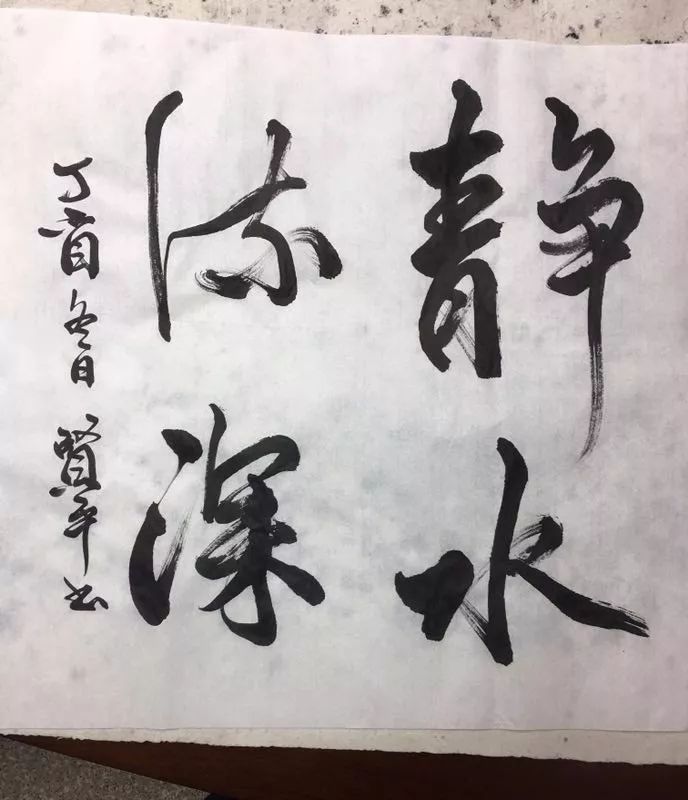 静水
流深
丁酉冬日賢平书